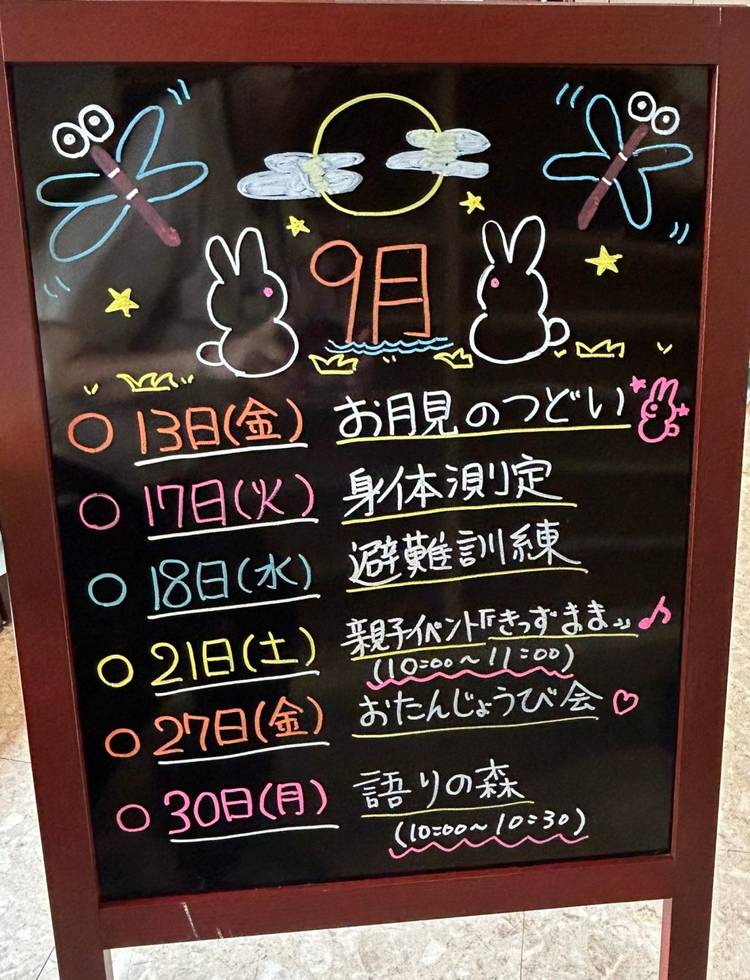 9月
○ 13日(金) お月見のつどい
○ 17日(火) 身体測定
○ 18日(水) 避難訓練
○ 21日(土) 親子イベント『きっずまま』♪
(10:00~11:00)
○ 27日(金) おたんじょうび会♡
○ 30日(月) 語りの森
(10:00~10:30)